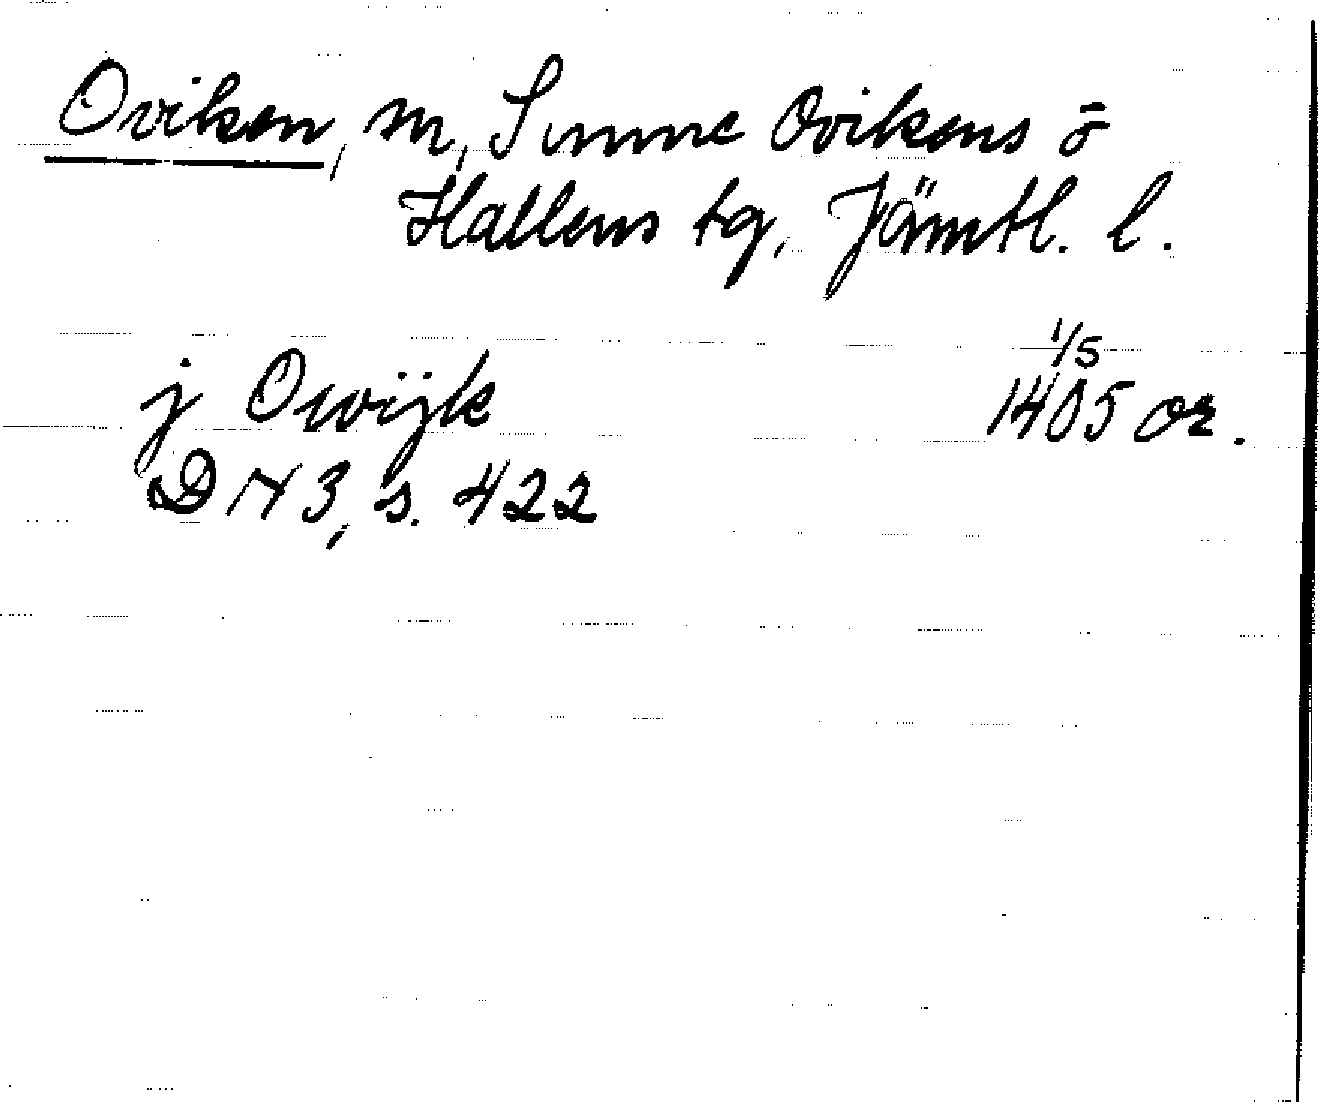 Oviken, m, Sunne Ovikens o
Hallens tg, Jämtl. l.
1/5
j Owijk 1405 or.
D 13, s. 422